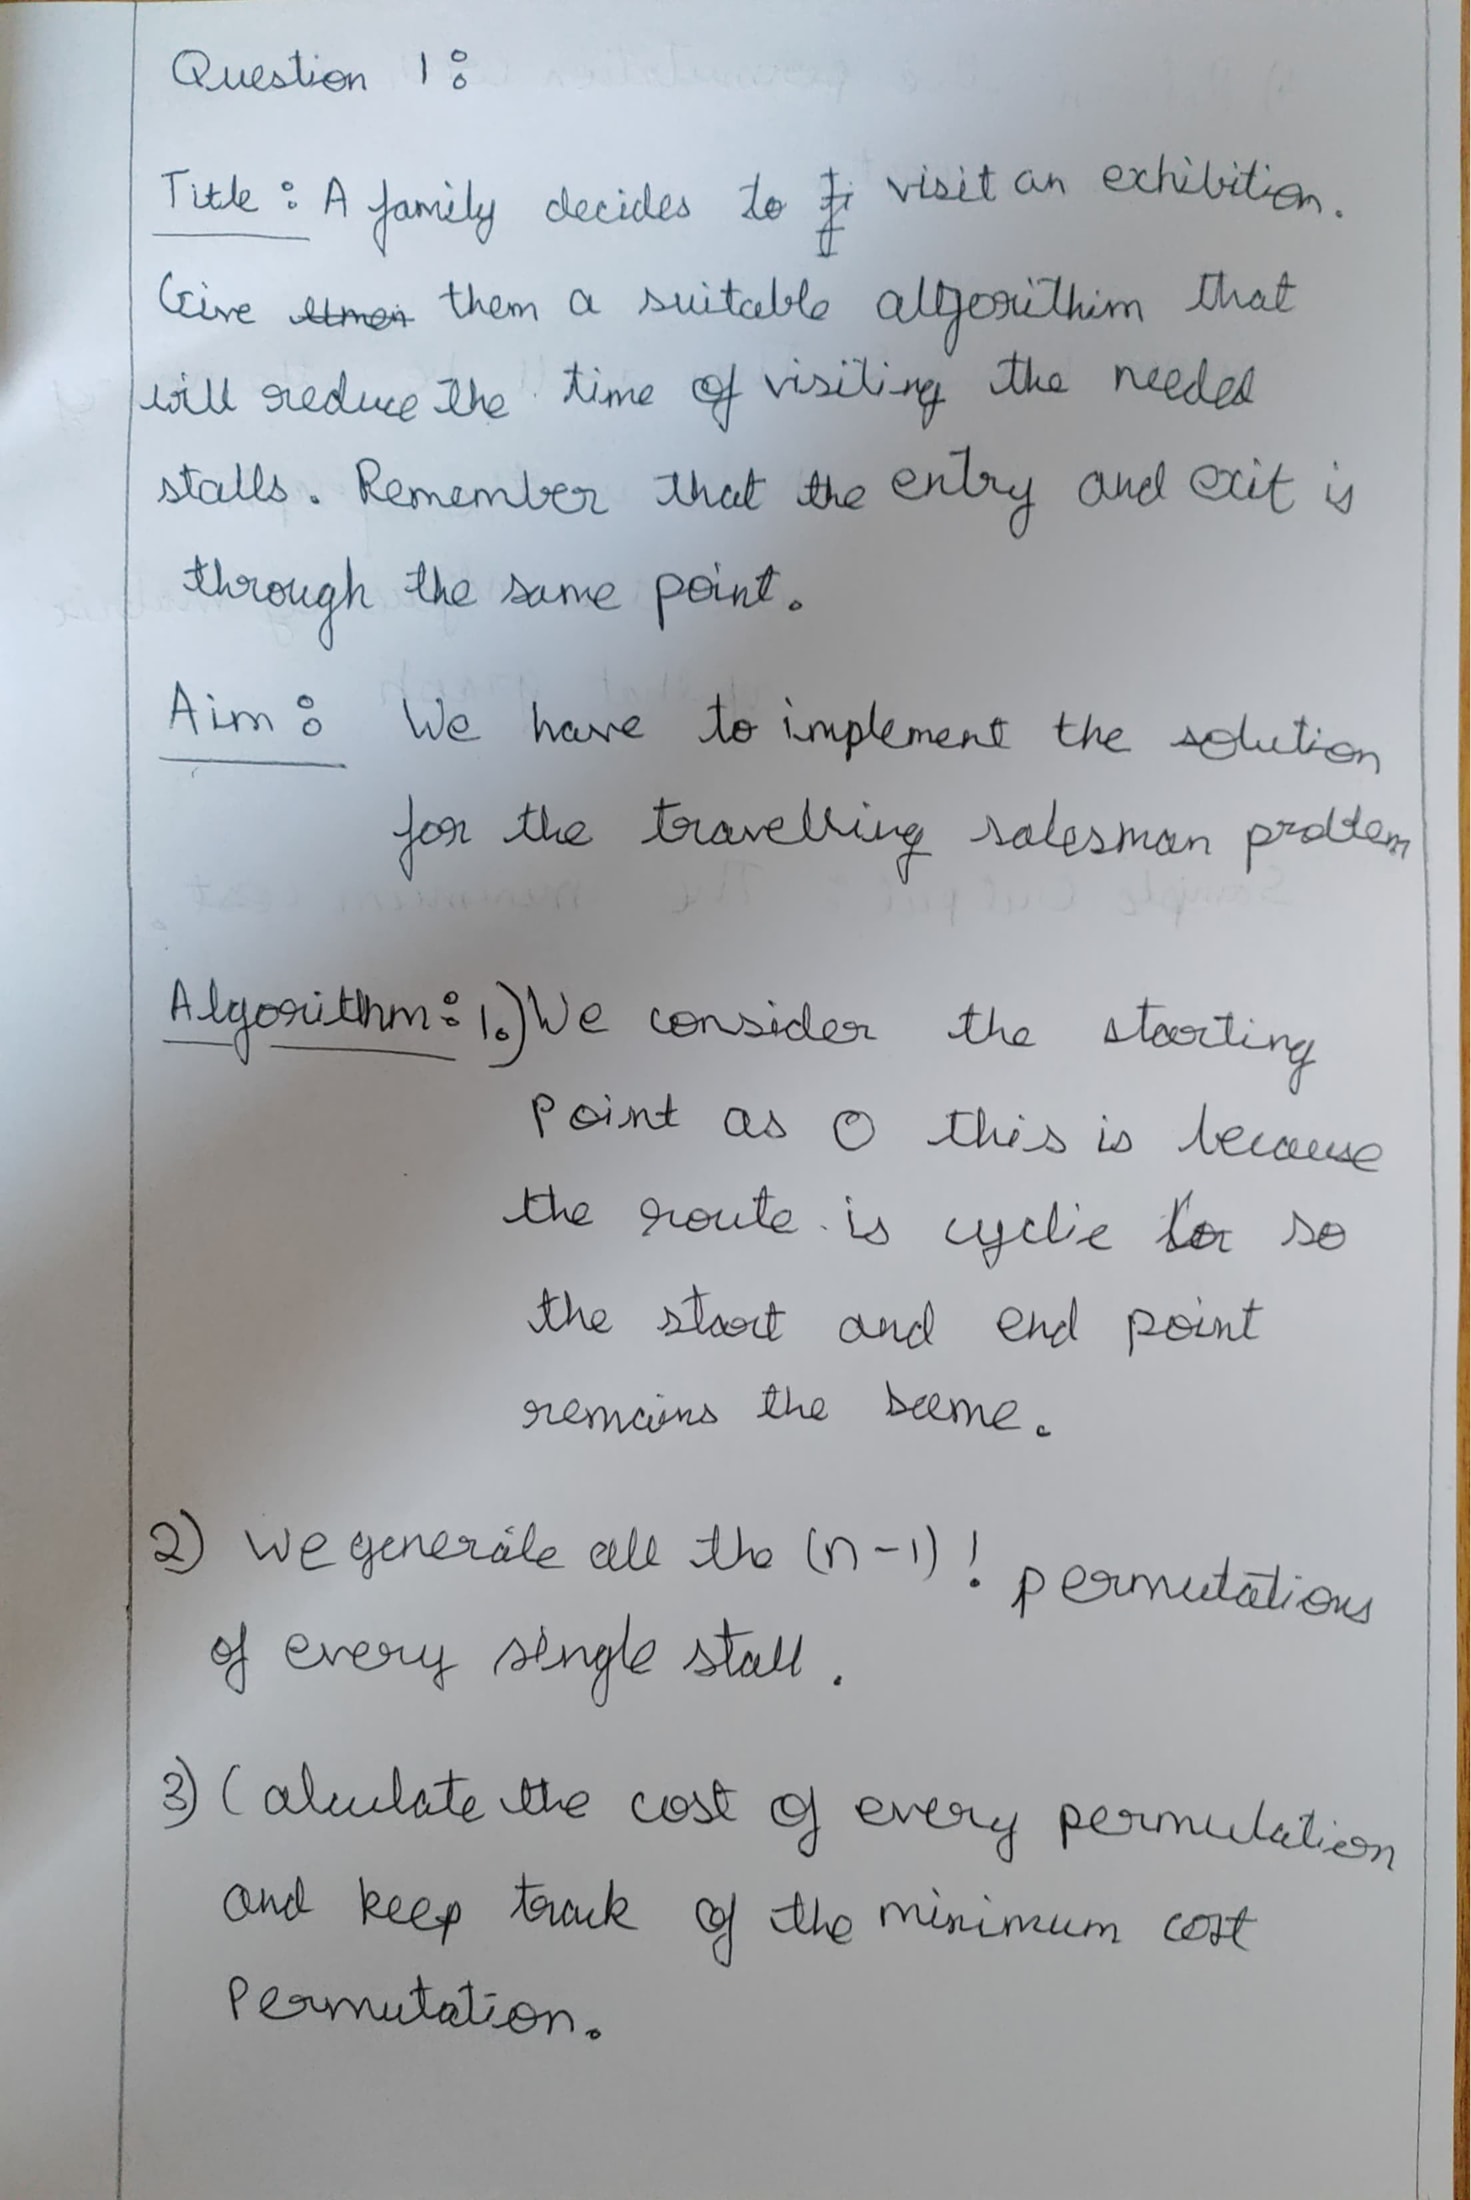 Question 1:
Title: A family decides to visit an exhibition.
Give them a suitable algorithim that
will reduce the time of visiting the needed
stalls. Remember that the entry and exit is
through the same point.
Aim: We have to implement the solution
for the travelling salesman problem
Algorithm: 1.) We consider the starting
point as 0 this is because
the route is cyclic so
the start and end point
remains the same.
2) We generate all the (n-1)! permutations
of every single stall.
3) Calculate the cost of every permutation
and keep track of the minimum cost
Permutation.